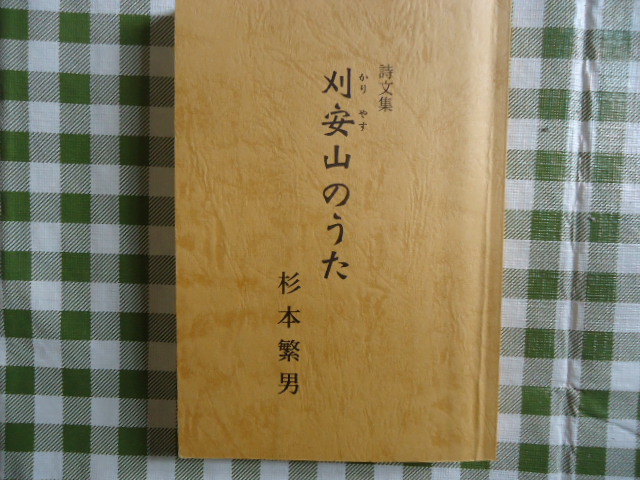 詩文集
刈安山のうた
かりやす
杉本繁男